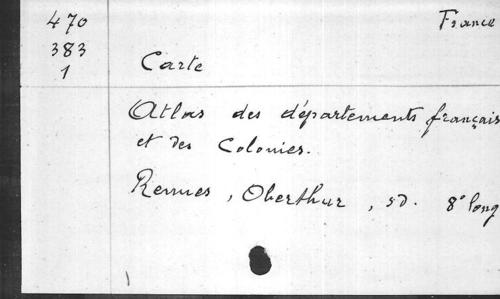 470 France
383
1 Carte
Atlas des départements français
et des Colonies.
Rennes, Oberthur, sd. 8° long